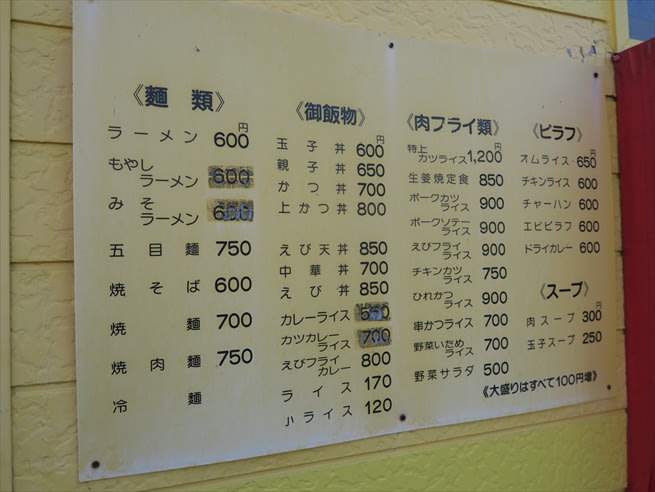 《麵類》
円
ラーメン 600
もやし
ラーメン 600
みそ
ラーメン 600
五目麵 750
焼そば 600
焼麵 700
焼肉麵 750
冷麵
《御飯物》
円
玉子丼 600
親子丼 650
かつ丼 700
上かつ丼 800
えび天丼 850
中華丼 700
えび丼 850
カレーライス
カツカレー
ライス 700
えびフライ
カレー 800
ライス 170
ハライス 120
《肉フライ類》
円
特上
カツライス 1,200
生姜焼定食 850
ポークカツ
ライス 900
ポークソテー
ライス 900
えびフライ
ライス 900
チキンカツ
ライス 750
ひれかつ
ライス 900
串かつライス 700
野菜いため
ライス 700
野菜サラダ 500
《ピラフ》
円
オムライス 650
チキンライス 600
チャーハン 600
エビピラフ 600
ドライカレー 600
《スープ》
円
肉スープ 300
玉子スープ 250
《大盛りはすべて100円増》